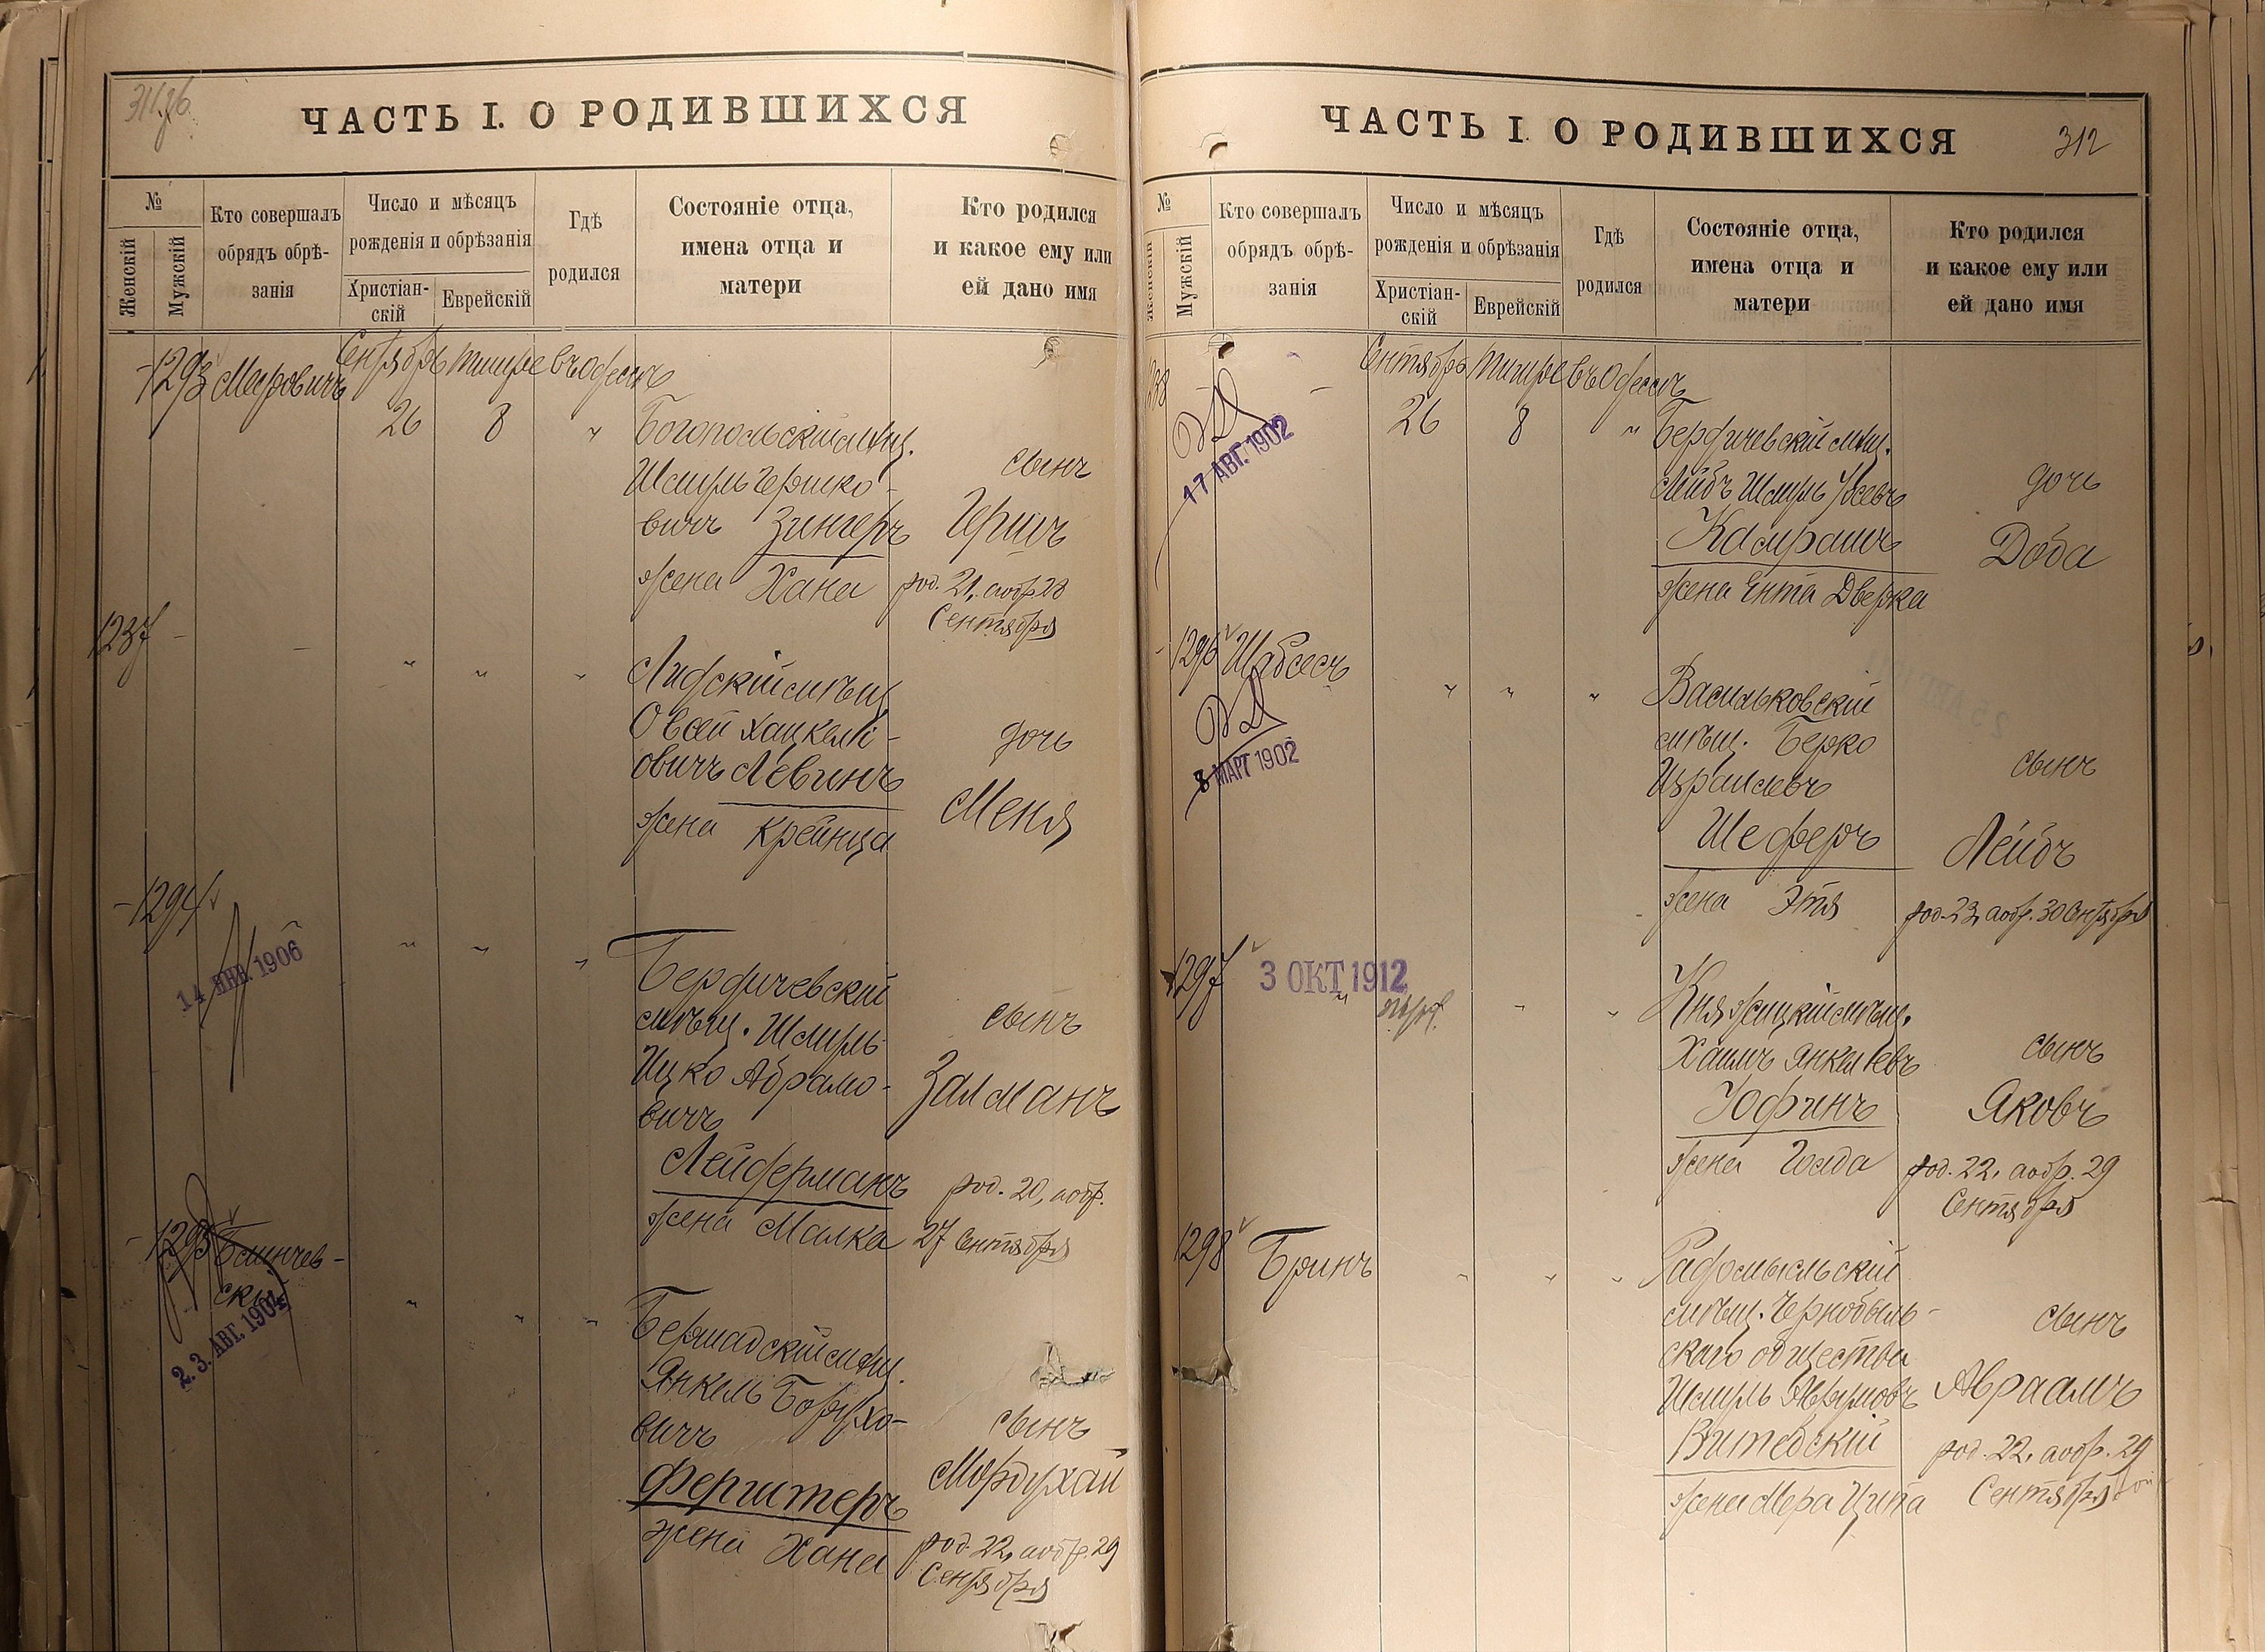 ЧАСТЬ I. О РОДИВШИХСЯ
№
Женскій
Мужскій
Кто совершалъ
обрядъ обрѣ-
занія
Число и мѣсяцъ
рожденія и обрѣзанія
Христіан-
скій
Еврейскій
Гдѣ
родился
Состояніе отца,
имена отца и
матери
Кто родился
и какое ему или
ей дано имя
1293 Мееровичъ Сентябрь Тишре въ Одессѣ
26 8 " Богопольскій мѣщ.
Шмуль Гершко-
вичъ Зингеръ
жена Хана
сынъ
Гершъ
род. 21, а обр 28
Сентября
1237 - - " " " Лидскій мѣщ
Овсей
овичъ Левинъ
жена Крейнца
дочь
Меня
1294
14 ЯНВ. 1906
" " " Бердичевскій
мѣщ. Шмуль
Ицко Абрамо-
вичъ
Лейдерманъ
жена Малка
сынъ
Залманъ
род. 20, а обр.
27 Сентября
1295
ски
2.3. АВГ. 1904
" " " Бершадскій мѣщ.
Янкель Борухо-
вичъ
Фергитеръ
жена Хана
сынъ
Мордухай
род. 22, а обр. 29
Сентября
ЧАСТЬ I. О РОДИВШИХСЯ 312
№
Женскій
Мужскій
Кто совершалъ
обрядъ обрѣ-
занія
Число и мѣсяцъ
рожденія и обрѣзанія
Христіан-
скій
Еврейскій
Гдѣ
родился
Состояніе отца,
имена отца и
матери
Кто родился
и какое ему или
ей дано имя
1238 - Сентябрь Тишре въ Одессѣ
17 АВГ. 1902
26 8 " Бердичевскій мѣщ.
Лейбъ Шмуль
жена Ента Дверка
дочь
Доба
1296 Шабсесъ
8 МАРТ 1902
" " " Васильковскій
мѣщ. Берко
Израилевъ
Шеферъ
жена Этя
сынъ
Лейбъ
род. 23, а обр. 30 Сентября
1297 3 ОКТ 1912
" " " Княжицкій мѣщ.
Хаимъ Янкелевъ
Іофинъ
жена Голда
сынъ
Яковъ
род. 22, а обр. 29
Сентября
1298 Бринъ " " " Радомысльскій
мѣщ. Чернобыль-
скаго общества
Шмуль Аврумовъ
Витебскій
жена Мера Ципа
сынъ
Авраамъ
род. 22, а обр. 29
Сентября